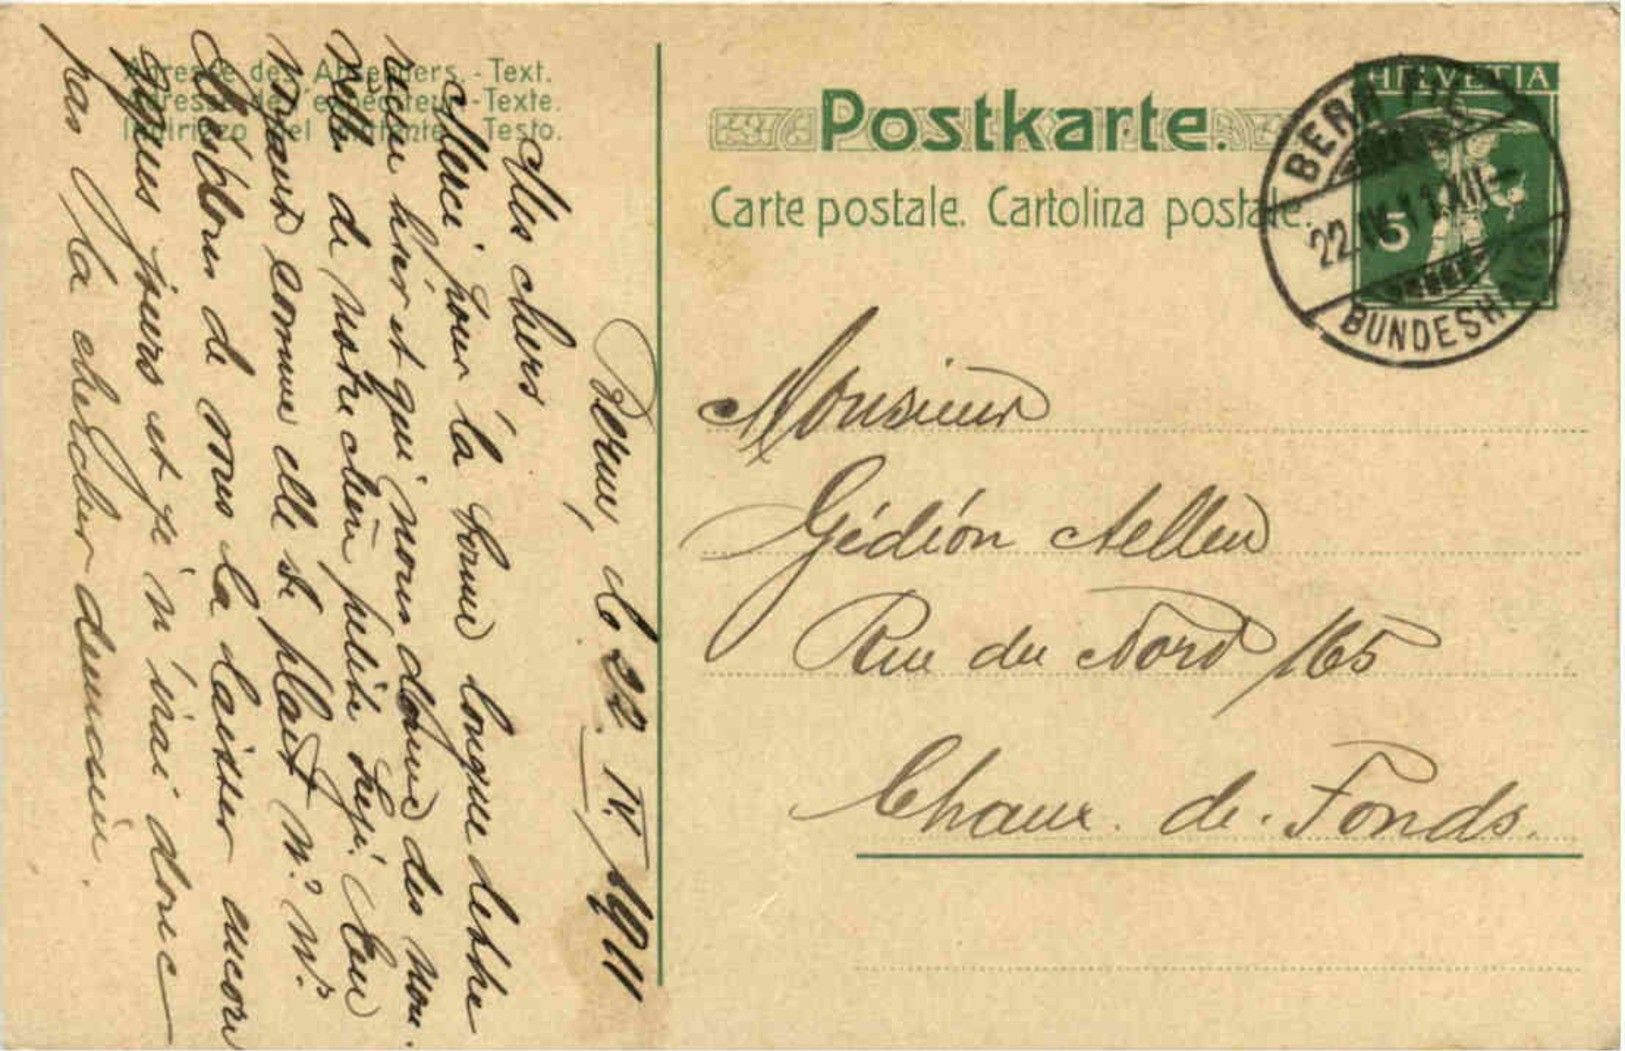 Adresse des Absenders. - Text.
Adresse de l'expéditeur. - Texte.
Indirizzo del mittente. - Testo.
Berne, le 22. IV. 1911
Mes chers,
Merci pour la bonne longue lettre
reçue hier et qui nous donne des nou-
velles de notre chère petite
comme elle se plait
de vous la laisser encore
jours et je n'irai donc
pas la chercher demain.
Postkarte.
Carte postale. Cartolina postale.
HELVETIA
5
BERN
22.IV.11.XII
BUNDESH
Monsieur
Gédéon Aellen
Rue du Nord 165
Chaux-de-Fonds.